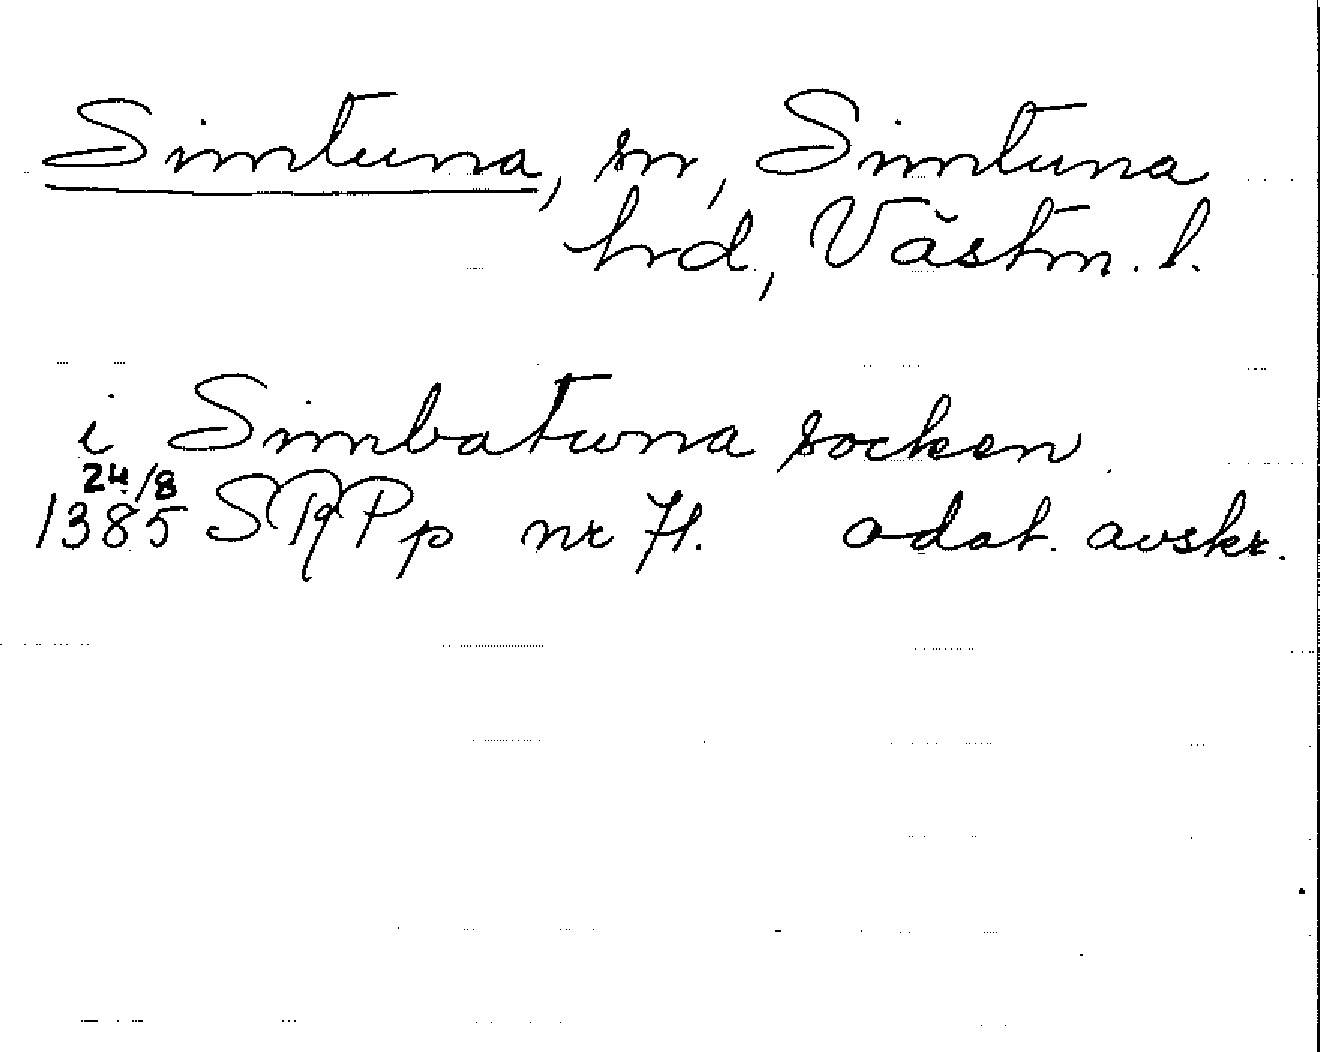 Simtuna, sn, Simtuna
hrd, Västm. l.
i Simbatuna socken
24/8
1385 SRPp nr 71. odat. avskr.